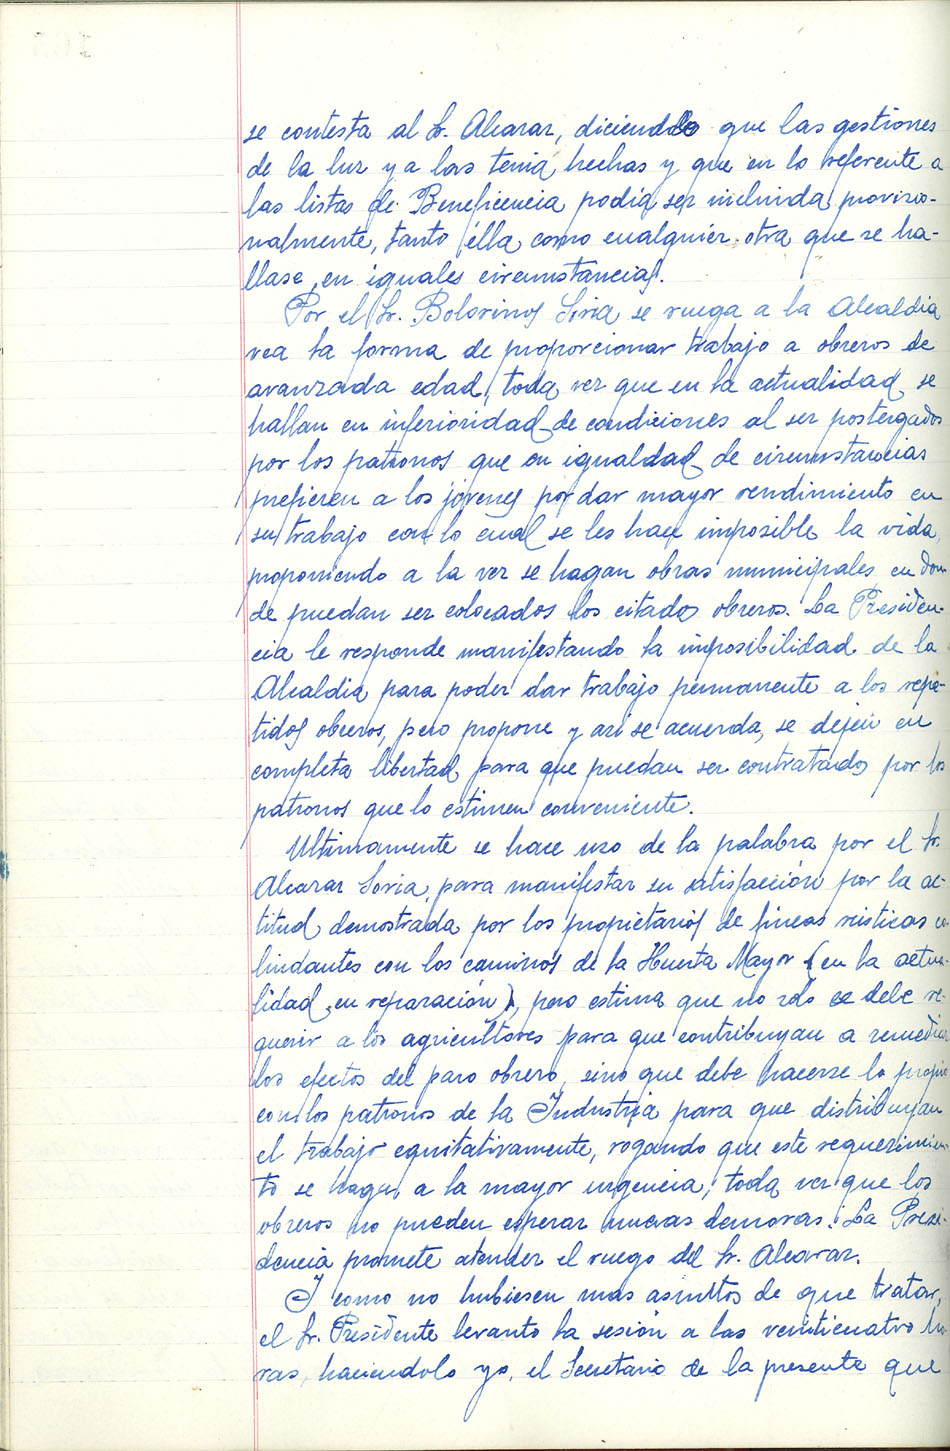 se contesta al Sr. Alcaraz, diciendole que las gestiones
de la luz ya las tenia hechas y que en lo referente a
las listas de Beneficencia podia ser incluida proviso-
nalmente, tanto élla como cualquier otra que se ha-
llase en iguales circunstancias.
Por el Sr. Bolarinos Soria se ruega a la Alcaldia
vea la forma de proporcionar trabajo a obreros de
avanzada edad, toda vez que en la actualidad se
hallan en inferioridad de condiciones al ser postergados
por los patronos que en igualdad de circunstancias
prefieren a los jóvenes por dar mayor rendimiento en
su trabajo con lo cual se les hace imposible la vida,
proponiendo a la vez se hagan obras municipales en don-
de puedan ser colocados los citados obreros. La Presiden-
cia le responde manifestando la imposibilidad de la
Alcaldia para poder dar trabajo permanente a los repe-
tidos obreros, pero propone y asi se acuerda, se dejen en
completa libertad para que puedan ser contratados por los
patronos que lo estimen conveniente.
Ultimamente se hace uso de la palabra por el Sr.
Alcaraz Soria, para manifestar su satisfacción por la ac-
titud demostrada por los propietarios de fincas rústicas co-
lindantes con los caminos de la Huerta Mayor (en la actua-
lidad en reparación), pero estima que no solo se debe re-
querir a los agricultores para que contribuyan a remediar
los efectos del paro obrero, sino que debe hacerse lo propio
con los patronos de la Industria para que distribuyan
el trabajo equitativamente, rogando que este requerimien-
to se haga a la mayor urgencia, toda vez que los
obreros no pueden esperar nuevas demoras. La Presi-
dencia promete atender el ruego del Sr. Alcaraz.
Y como no hubiesen mas asuntos de que tratar,
el Sr. Presidente levanto la sesión a las veinticuatro ho-
ras, haciendolo yo, el Secretario de la presente que